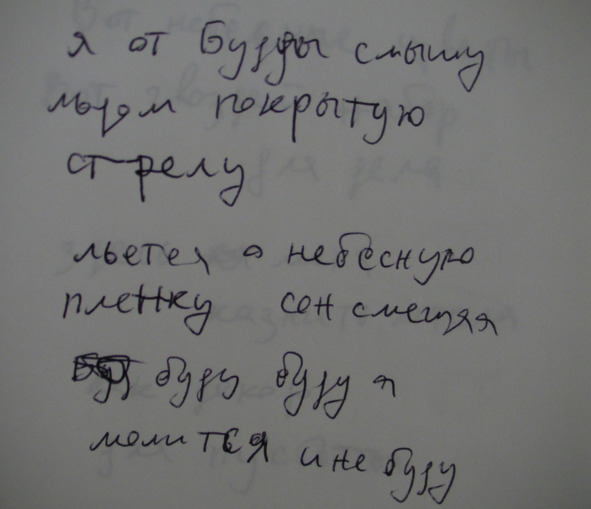 я от Будды смышу
льдом покрытую
стрелу
льется о небесную
пленку сон смещяя
буду буду я
молится и не буду